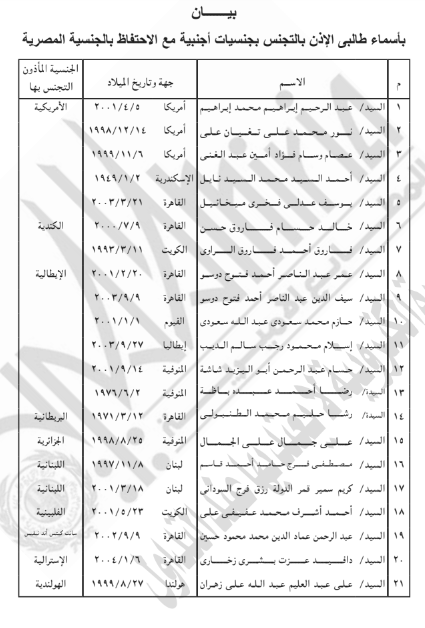 بيـــــان
بأسماء طالبى الإذن بالتجنس بجنسيات أجنبية مع الاحتفاظ بالجنسية المصرية
م الاســـم جهة وتاريخ الميلاد الجنسية المأذون التجنس بها
١ السيد/ عبد الرحيم إبراهيم محمد إبراهيم أمريكا ٢٠٠١/٤/٥ الأمريكية
٢ السيد/ نور محمد على تغيان على أمريكا ١٩٩٨/١٢/١٤
٣ السيد/ عصام وسام فؤاد أمين عبد الغنى أمريكا ١٩٩٩/١١/٦
٤ السيد/ أحمد السيد محمد السيد نايل الإسكندرية ١٩٤٩/١/٢
٥ السيد/ يوسف عدلى فخرى ميخائيل القاهرة ٢٠٠٣/٣/٢١
٦ السيد/ خالد حسام فاروق حسن القاهرة ٢٠٠٠/٧/٩ الكندية
٧ السيد/ فاروق أحمد فاروق الراوى الكويت ١٩٩٣/٣/١١
٨ السيد/ عمر عبد الناصر أحمد فتوح دوسو القاهرة ٢٠٠١/٢/٢٠ الإيطالية
٩ السيد/ سيف الدين عبد الناصر أحمد فتوح دوسو القاهرة ٢٠٠٣/٩/٩
١٠ السيد/ حازم محمد سعودى عبد الله سعودى الفيوم ٢٠٠١/١/١
١١ السيد/ إسلام محمود رجب سالم الديب إيطاليا ٢٠٠٣/٩/٢٧
١٢ السيد/ حسام عبد الرحمن أبو اليزيد شاشة المنوفية ٢٠٠١/٩/١٤
١٣ السيدة/ رضا أحمد عبده باظة المنوفية ١٩٧٦/٦/٢
١٤ السيدة/ رشا حليم محمد الطنبولى القاهرة ١٩٧١/٣/١٢ البريطانية
١٥ السيد/ على جمال على الجمال المنوفية ١٩٩٨/٨/٢٥ الجزائرية
١٦ السيد/ مصطفى فرج حامد أحمد قاسم لبنان ١٩٩٧/١١/٨ اللبنانية
١٧ السيد/ كريم سمير قمر الدولة رزق فرج السودانى لبنان ٢٠٠١/٣/١٨ اللبنانية
١٨ السيد/ أحمد أشرف محمد عفيفى على الكويت ٢٠٠١/٥/٢٣ الفلبينية
١٩ السيد/ عبد الرحمن عماد الدين محمد محمود حسين القاهرة ٢٠٠٢/٩/٩ سانت كيتس آند نيفيس
٢٠ السيد/ دافيد عزت بشرى زخارى القاهرة ٢٠٠٤/١/٦ الإسترالية
٢١ السيد/ على عبد العليم عبد الله على زهران هولندا ١٩٩٩/٨/٢٧ الهولندية